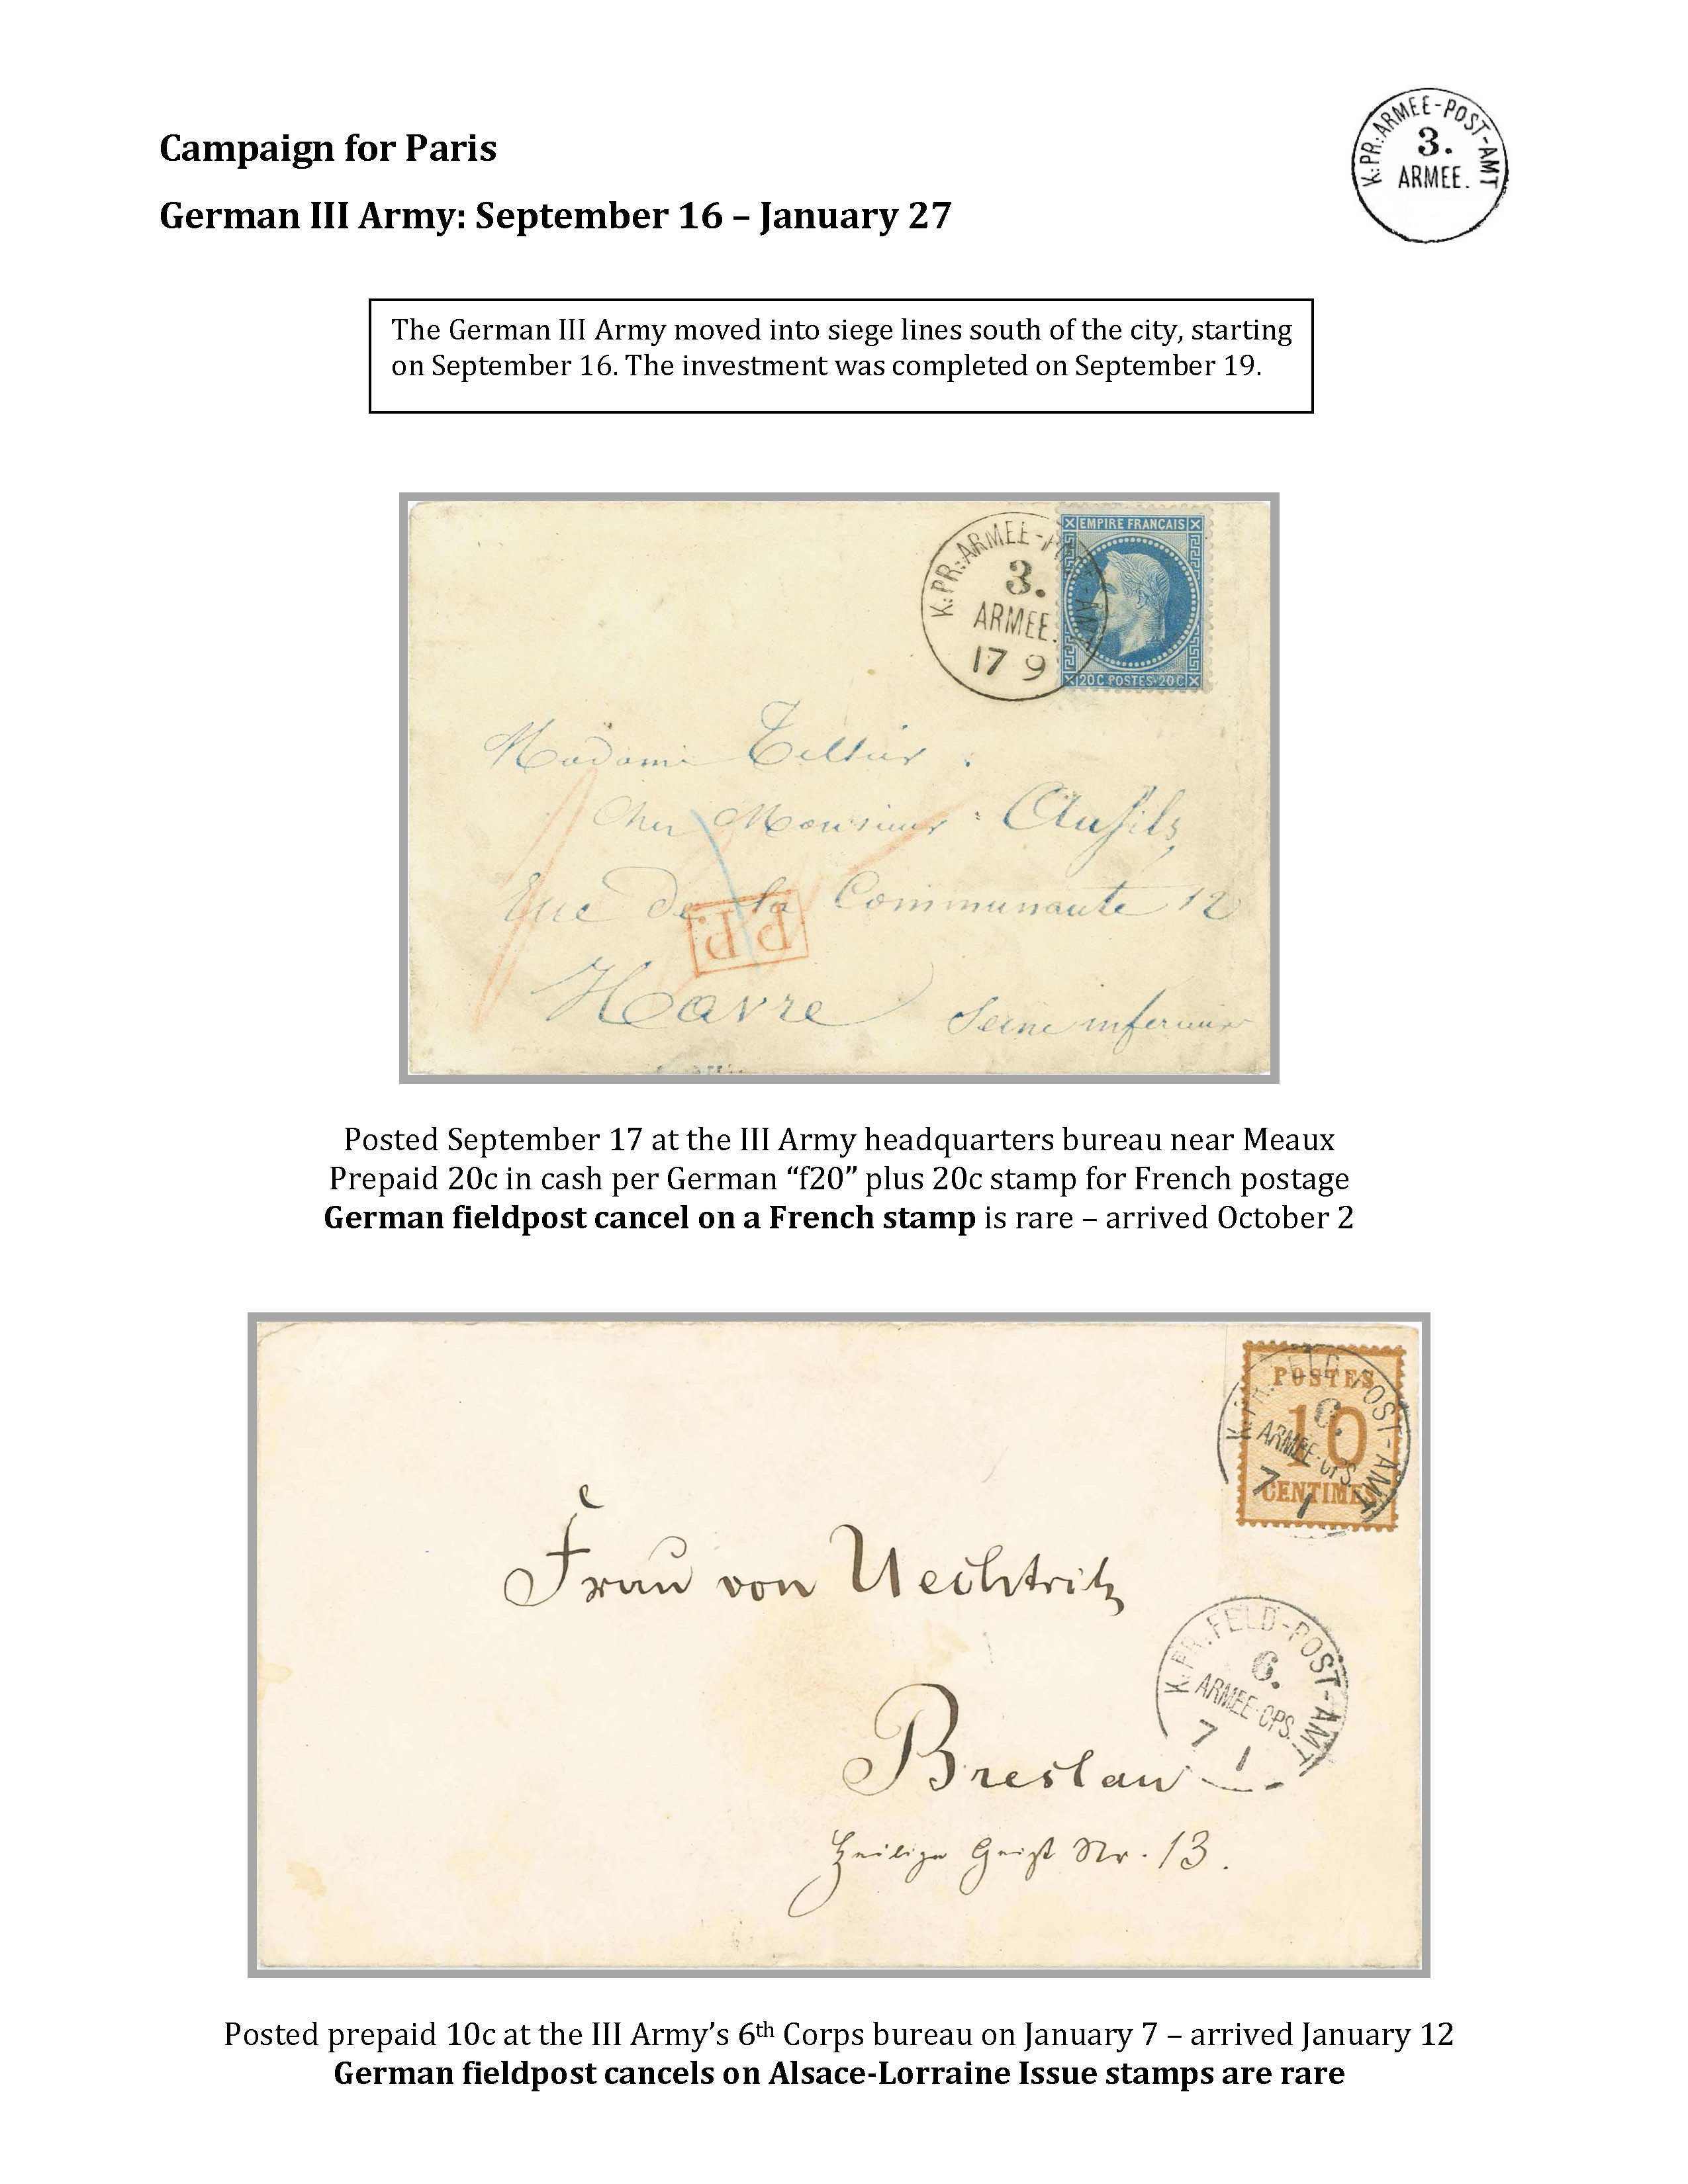 Campaign for Paris
K:PR:ARMEE-POST-AMT
3.
ARMEE.
German III Army: September 16 – January 27
The German III Army moved into siege lines south of the city, starting
on September 16. The investment was completed on September 19.
K:PR:ARMEE-POST-AMT
3.
ARMEE.
17 9
EMPIRE FRANÇAIS
20C POSTES 20C
Madame
Monsieur
Rue de la Communauté 12
P.P.
Havre
Seine inferieure
Posted September 17 at the III Army headquarters bureau near Meaux
Prepaid 20c in cash per German “f20” plus 20c stamp for French postage
German fieldpost cancel on a French stamp is rare – arrived October 2
POSTES
10
CENTIMES
K:PR:FELD-POST-AMT
6.
ARMEE-CPS.
7 1
Frau von Uechtritz
K:PR:FELD-POST-AMT
6.
ARMEE-CPS.
7 1
Breslau
Heilige Geist Nr. 13.
Posted prepaid 10c at the III Army’s 6th Corps bureau on January 7 – arrived January 12
German fieldpost cancels on Alsace-Lorraine Issue stamps are rare